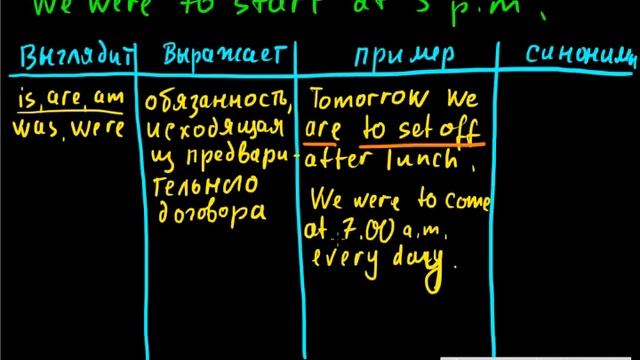 We were to start at 5 p.m.
Выглядит
Выражает
пример
синонимы
is, are, am
was, were
обязанность,
исходящая
из предвари-
тельного
договора
Tomorrow we
are to set off
after lunch.
We were to come
at 7.00 a.m.
every day.